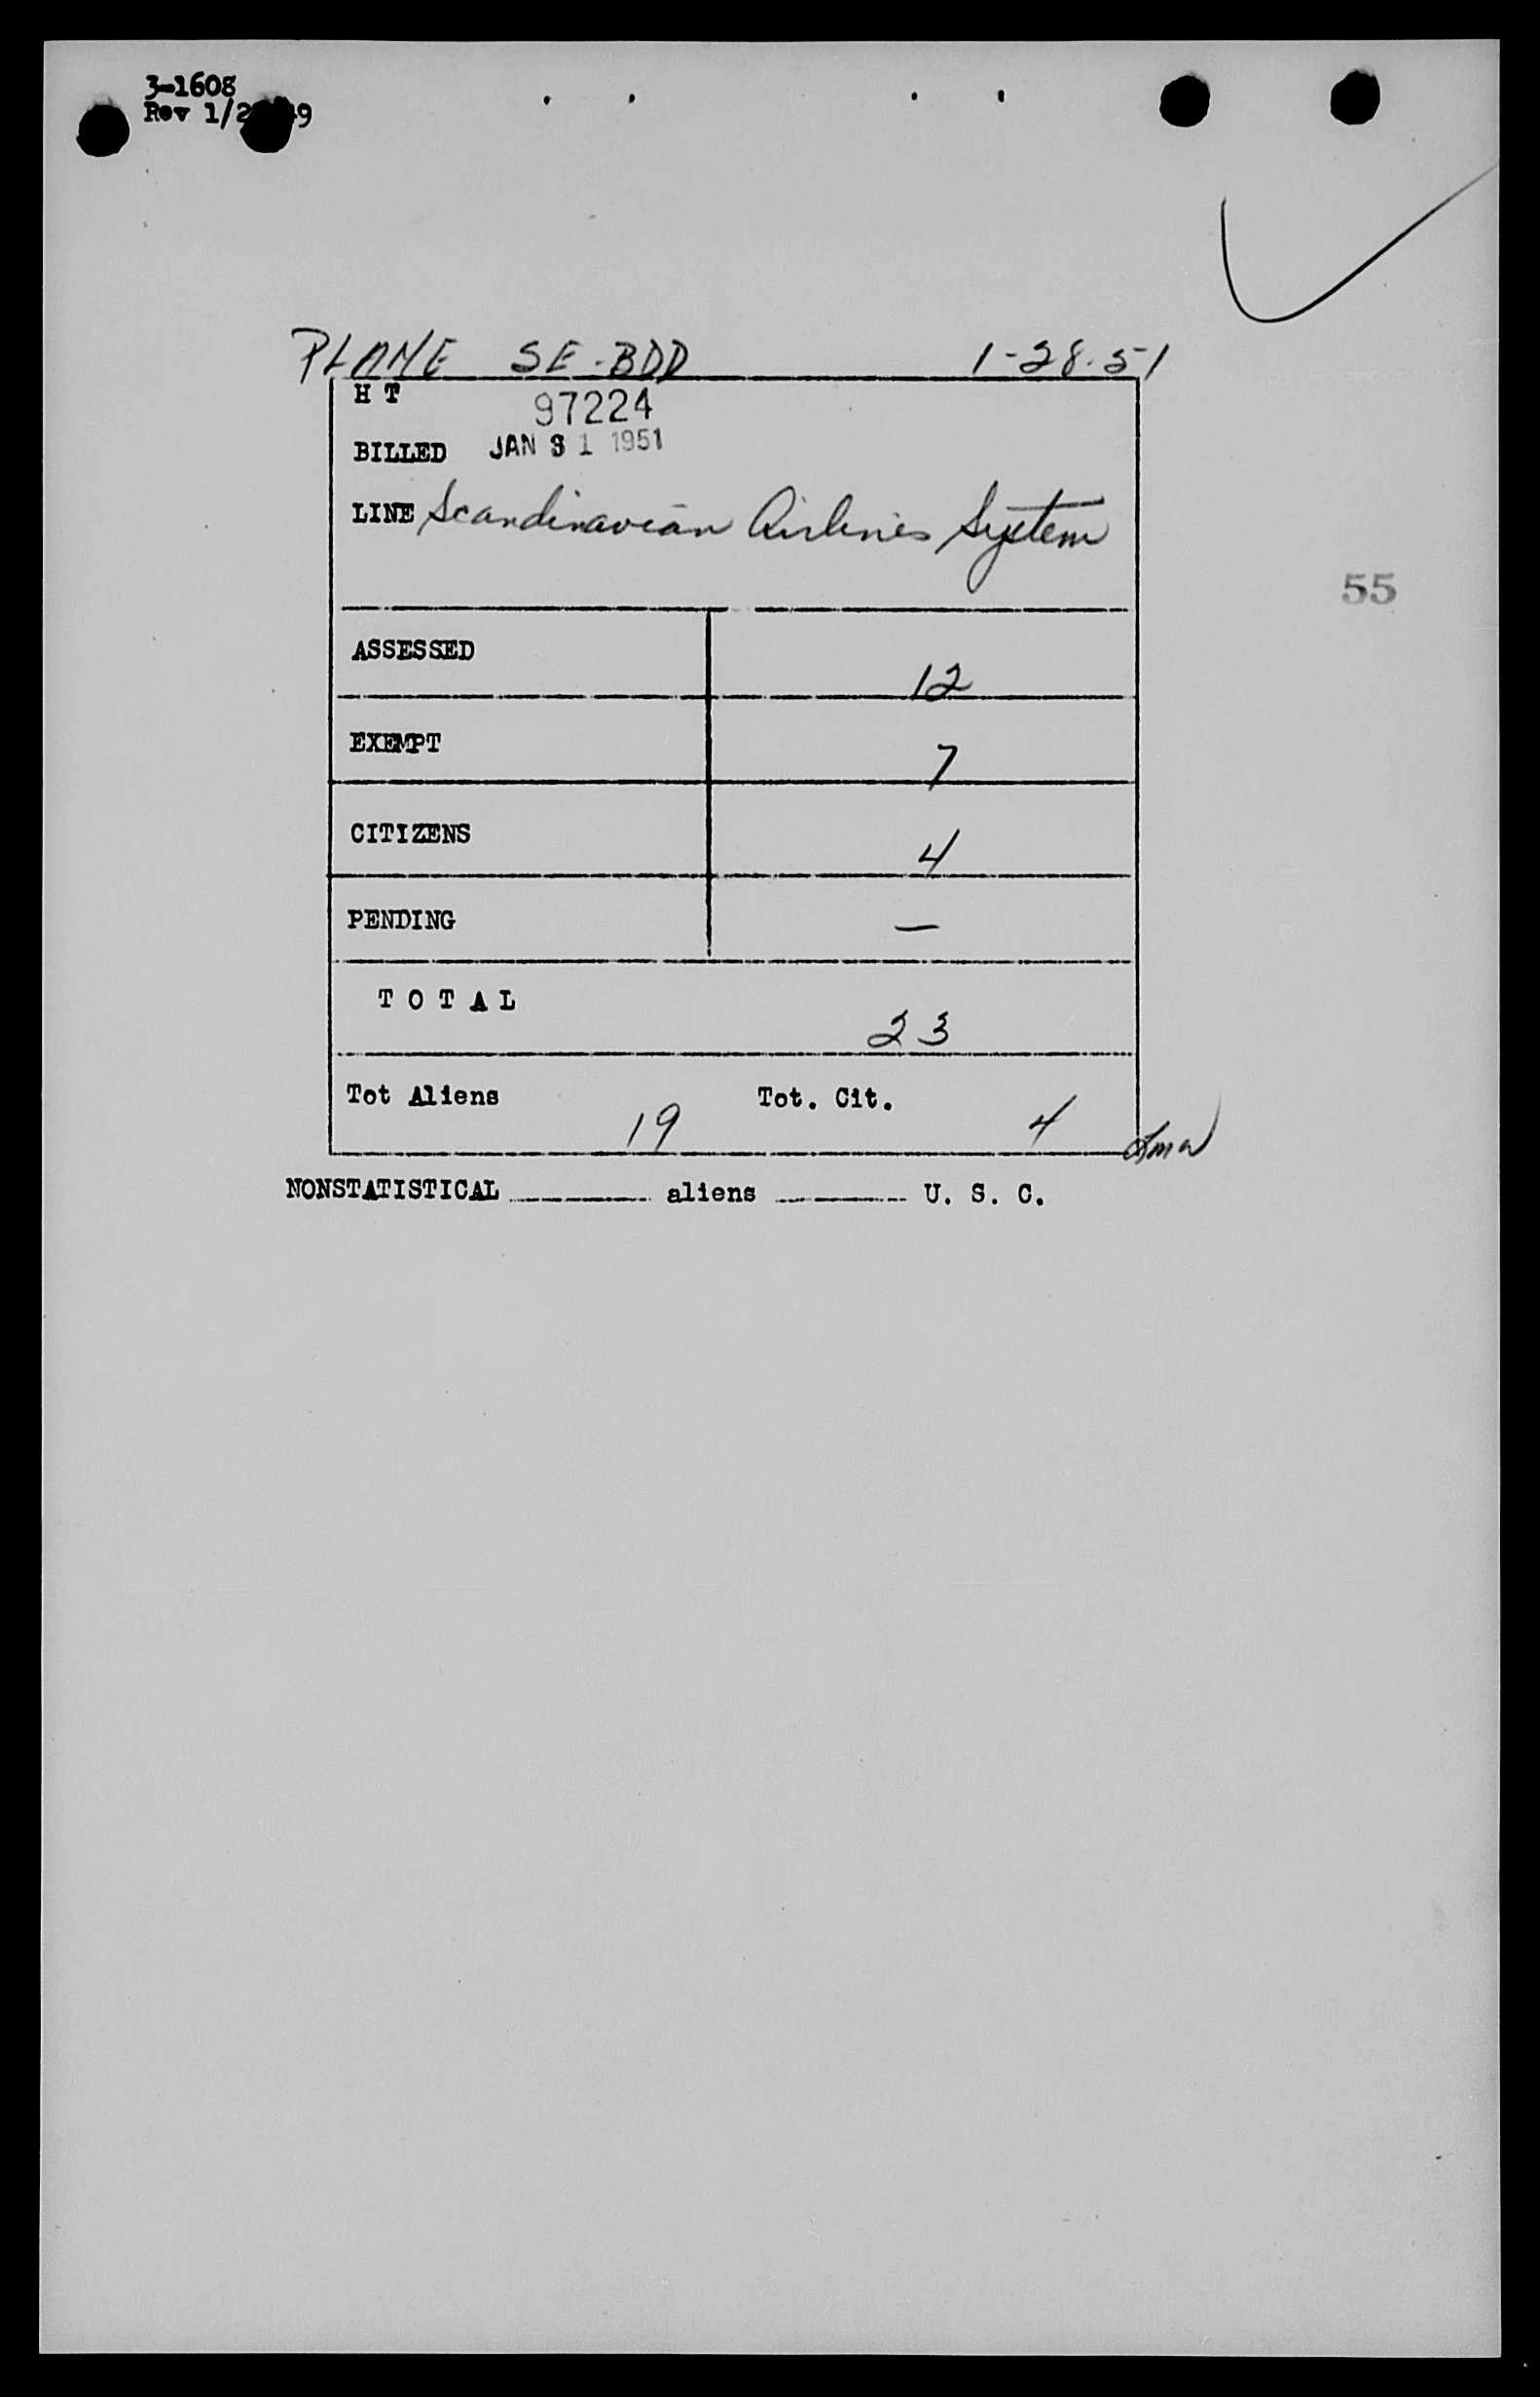 3-1608
Rev 1/2 9
PLANE SE-BDD 1-28-51
H T 97224
BILLED JAN 31 1951
LINE Scandinavian Airlines System
55
ASSESSED 12
EXEMPT 7
CITIZENS 4
PENDING —
TOTAL 23
Tot Aliens 19 Tot. Cit. 4
NONSTATISTICAL ______ aliens ______ U. S. C.